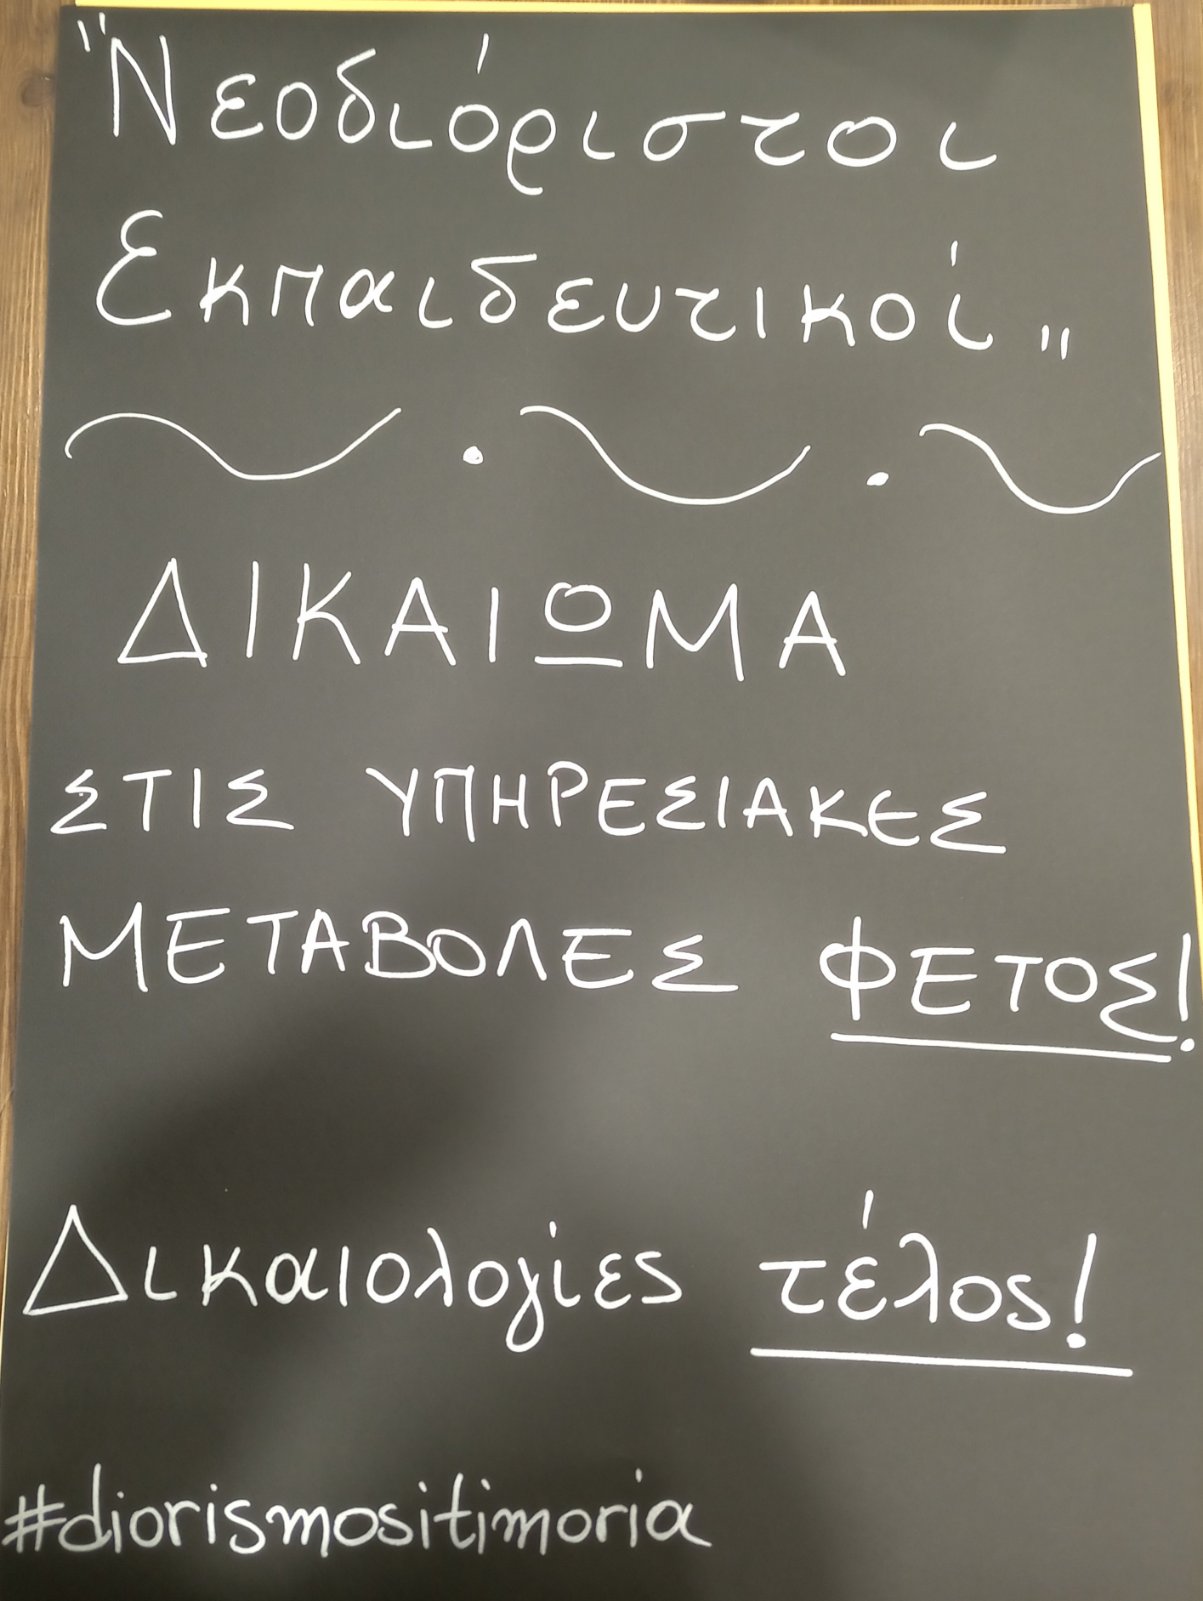 "Νεοδιόριστοι
Εκπαιδευτικοί"
ΔΙΚΑΙΩΜΑ
ΣΤΙΣ ΥΠΗΡΕΣΙΑΚΕΣ
ΜΕΤΑΒΟΛΕΣ ΦΕΤΟΣ!
Δικαιολογίες τέλος!
#diorismositimoria